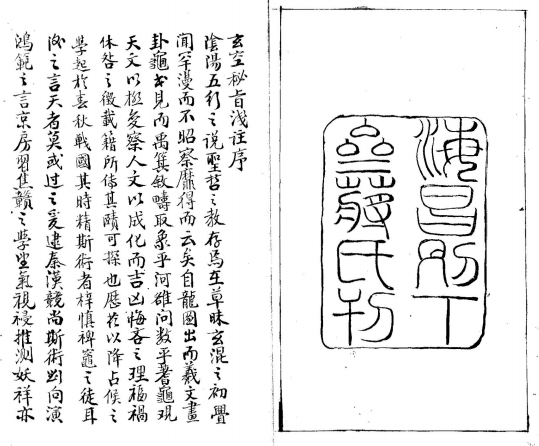 海昌別下
齋蔣氏刊
玄空秘旨淺注序
陰陽五行之說聖哲之教存焉在草昧玄混之初舋
聞罕漫而不昭察靡得而云矣自龍圖出而羲文畫
卦龜書見而禹箕敘疇取象乎河雒問數乎蓍龜觀
天文以極變察人文以成化而吉凶悔吝之理福禍
休咎之徵載籍所傳其賾可探也歷茲以降占候之
學起於春秋戰國其時精斯術者梓慎裨竈之徒耳
後之言天者莫或過之爰逮秦漢競尚斯術劉向演
鴻範之言京房習焦贛之學望氣視祲推測妖祥亦